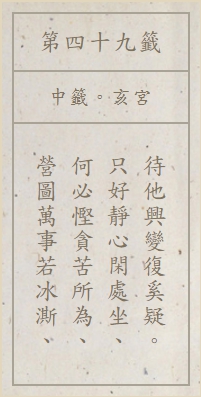 第四十九籤
中籤。亥宮
營圖萬事若冰澌、
何必慳貪苦所為、
只好靜心閑處坐、
待他興變復奚疑。